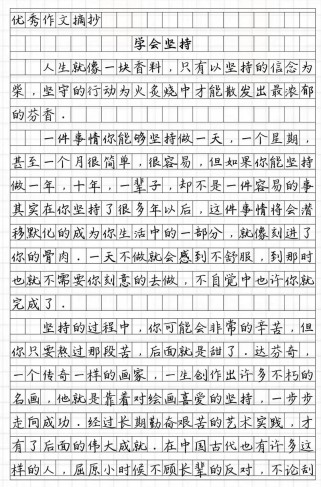 优秀作文摘抄
学会坚持
人生就像一块香料，只有以坚持的信念为
柴，坚守的行动为火炙烧中才能散发出最浓郁
的芬香．
一件事情你能够坚持做一天，一个星期，
甚至一个月很简单，很容易，但如果你能坚持
做一年，十年，一辈子，却不是一件容易的事
其实在你坚持了很多年以后，这件事情将会潜
移默化的成为你生活中的一部分，就像刻进了
你的骨肉．一天不做就会感到不舒服，到那时
也就不需要你刻意的去做，不自觉中也许你就
完成了．
坚持的过程中，你可能会非常的辛苦，但
你只要熬过那段苦，后面就是甜了．达芬奇，
一个传奇一样的画家，一生创作出许多不朽的
名画，他就是靠着对绘画喜爱的坚持，一步步
走向成功．经过长期勤奋艰苦的艺术实践，才
有了后面的伟大成就．在中国古代也有许多这
样的人，屈原小时候不顾长辈的反对，不论刮